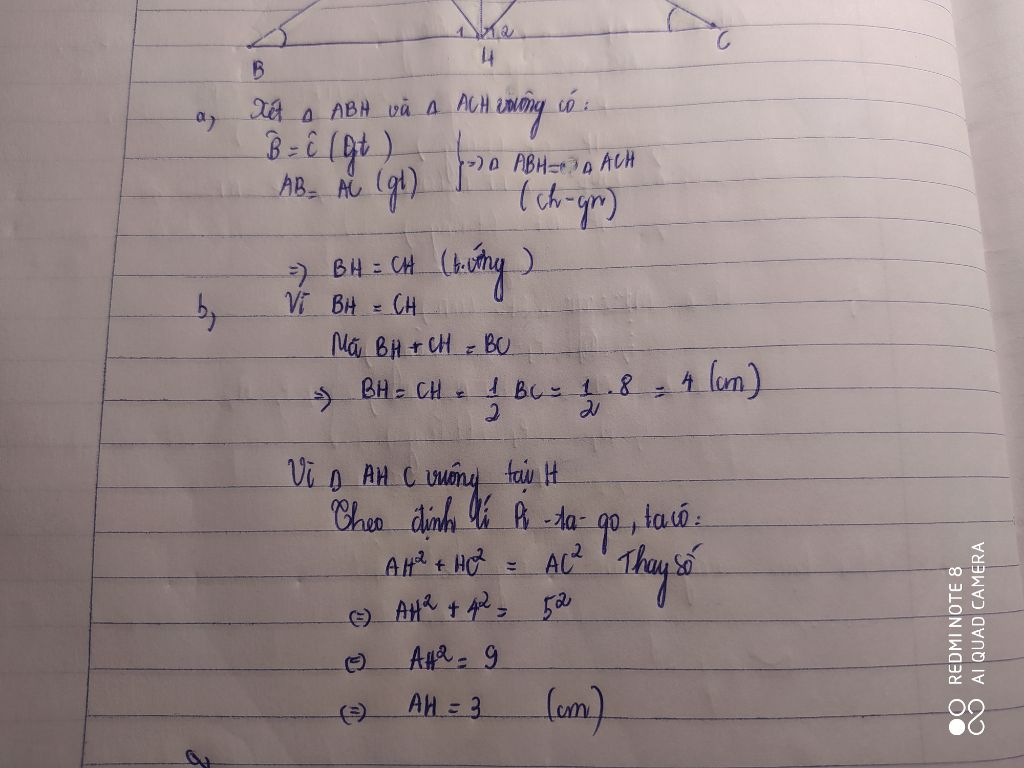 1 2
B
H
C
a, Xét Δ ABH và Δ ACH vuông có:
B̂ = Ĉ (gt)
AB = AC (gt)
=> Δ ABH = Δ ACH
(ch-gn)
=> BH = CH (t.ứng)
b, Vì BH = CH
Mà BH + CH = BC
=> BH = CH = 1/2 BC = 1/2 . 8 = 4 (cm)
Vì Δ AHC vuông tại H
Theo định lí Pi-ta-go, ta có:
AH² + HC² = AC² Thay số
(=) AH² + 4² = 5²
(=) AH² = 9
(=) AH = 3 (cm)
REDMI NOTE 8
AI QUAD CAMERA